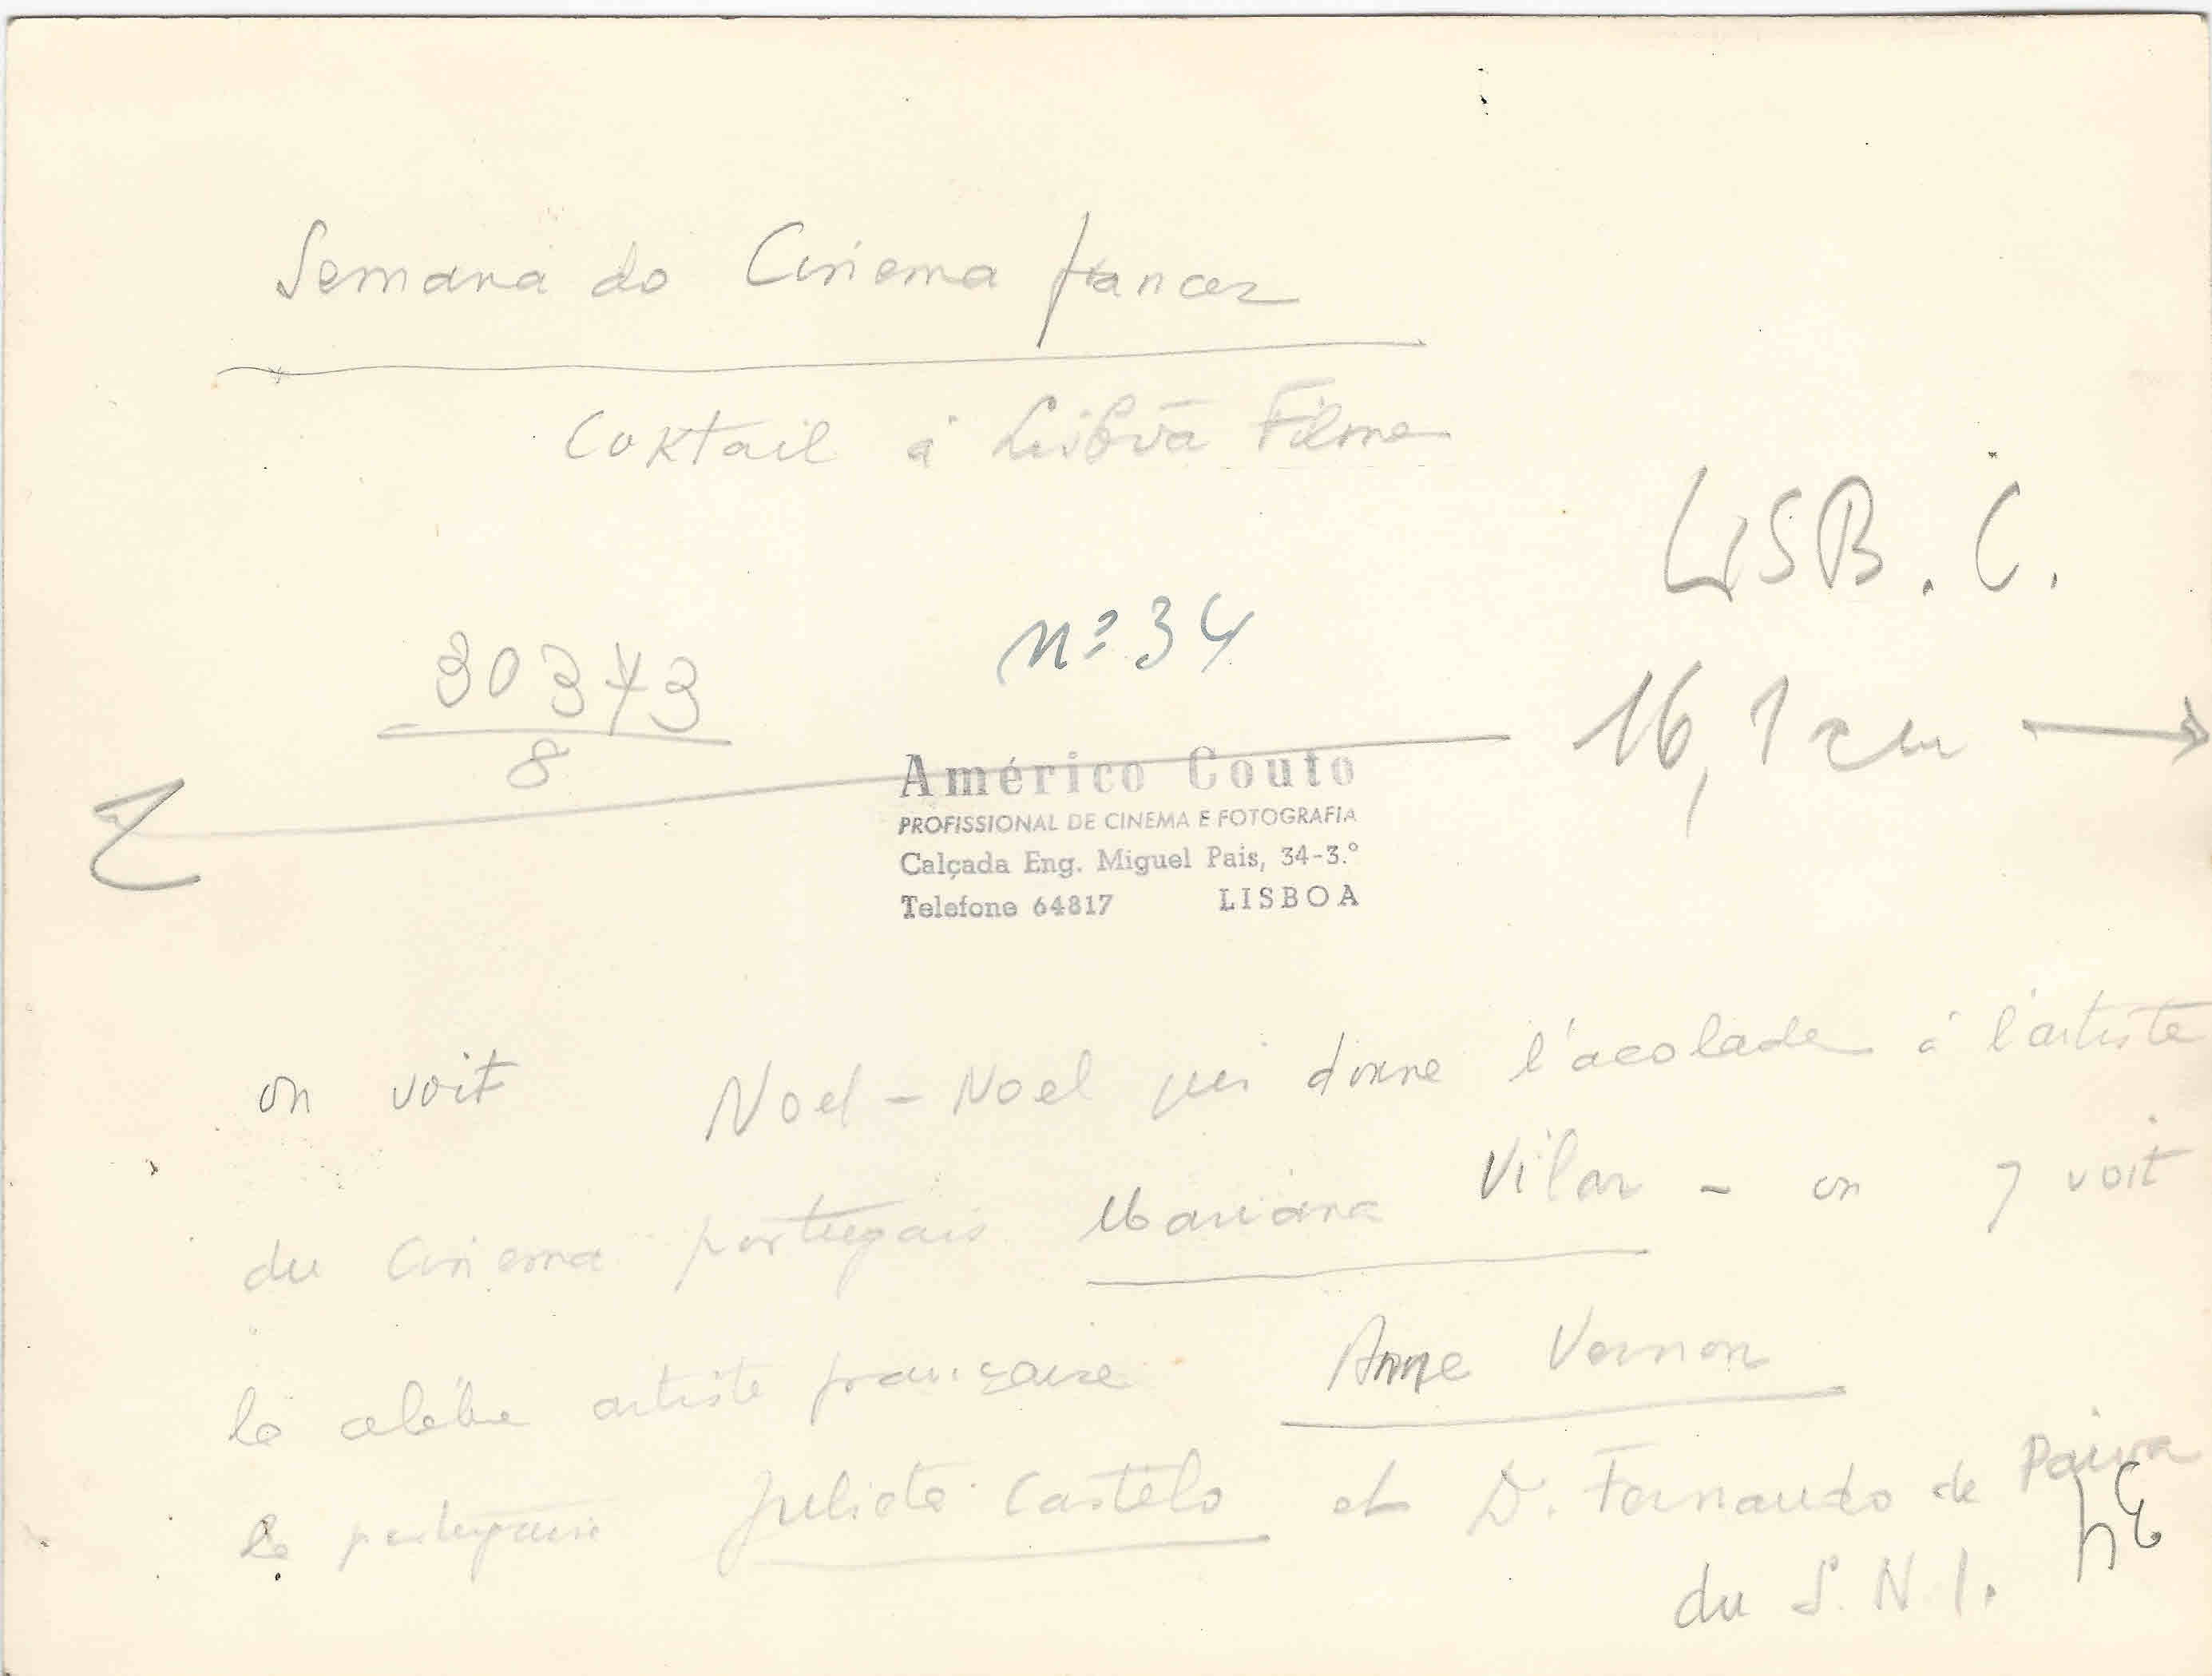 Semana do Cinema francez
Coktail á Lisbôa Filme
LISB. C.
nº 34
30373
8
16,1 cm
Américo Couto
PROFISSIONAL DE CINEMA E FOTOGRAFIA
Calçada Eng. Miguel Pais, 34-3.º
Telefone 64817 LISBOA
on voit Noel-Noel qui donne l'acolade á l'artiste
du Cinema portugais Mariana Vilar - on y voit
la célèbre artiste française Anne Vernon
la portugaise Julieta Castelo et D. Fernando de Paiva
du S.N.I.
34